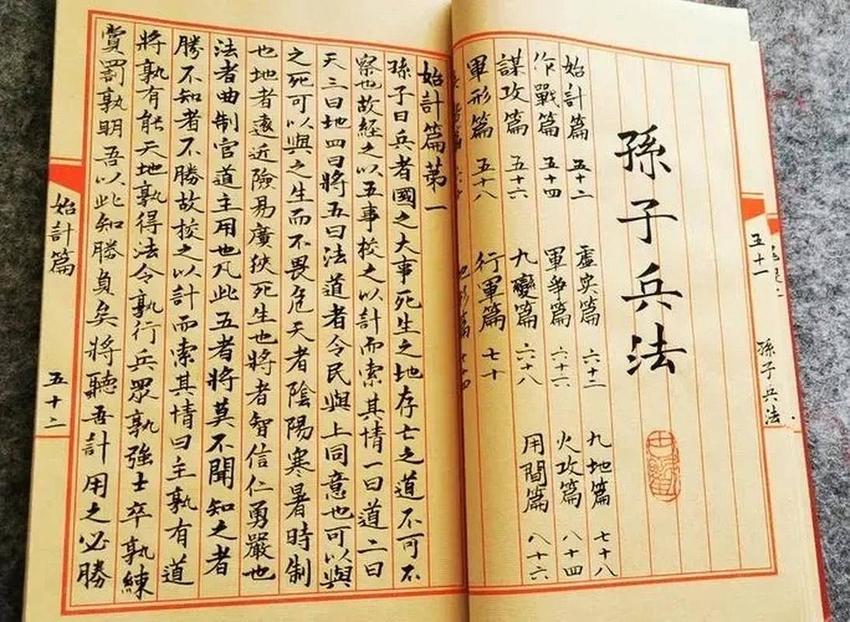 孫子兵法
五十一
孫子兵法
始計篇 五十二 虛实篇 六十二 九地篇 七十八
作戰篇 五十四 軍爭篇 六十六 火攻篇 八十四
謀攻篇 五十六 九變篇 六十八 用間篇 八十六
軍形篇 五十八 行軍篇 七十
始計篇第一
孫子曰兵者國之大事死生之地存亡之道不可不
察也故經之以五事校之以計而索其情一曰道二曰
天三曰地四曰將五曰法道者令民與上同意也可以與
之死可以與之生而不畏危天者陰陽寒暑時制
也地者遠近險易廣狹死生也將者智信仁勇嚴也
法者曲制官道主用也凡此五者將莫不聞知之者
勝不知者不勝故校之以計而索其情曰主孰有道
將孰有能天地孰得法令孰行兵眾孰強士卒孰練
賞罰孰明吾以此知勝負矣將聽吾計用之必勝
始計篇 五十二